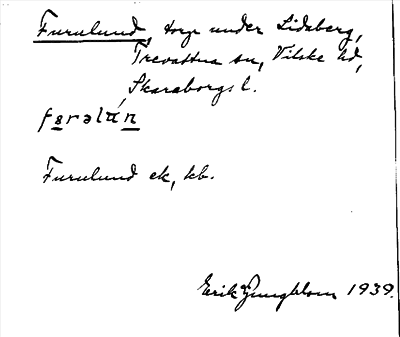 Furulund, torp under Lidsberg,
Trevattna sn, Vilske hd,
Skaraborgs l.
Furulund ek, kb.
Erik Ljungblom 1939.